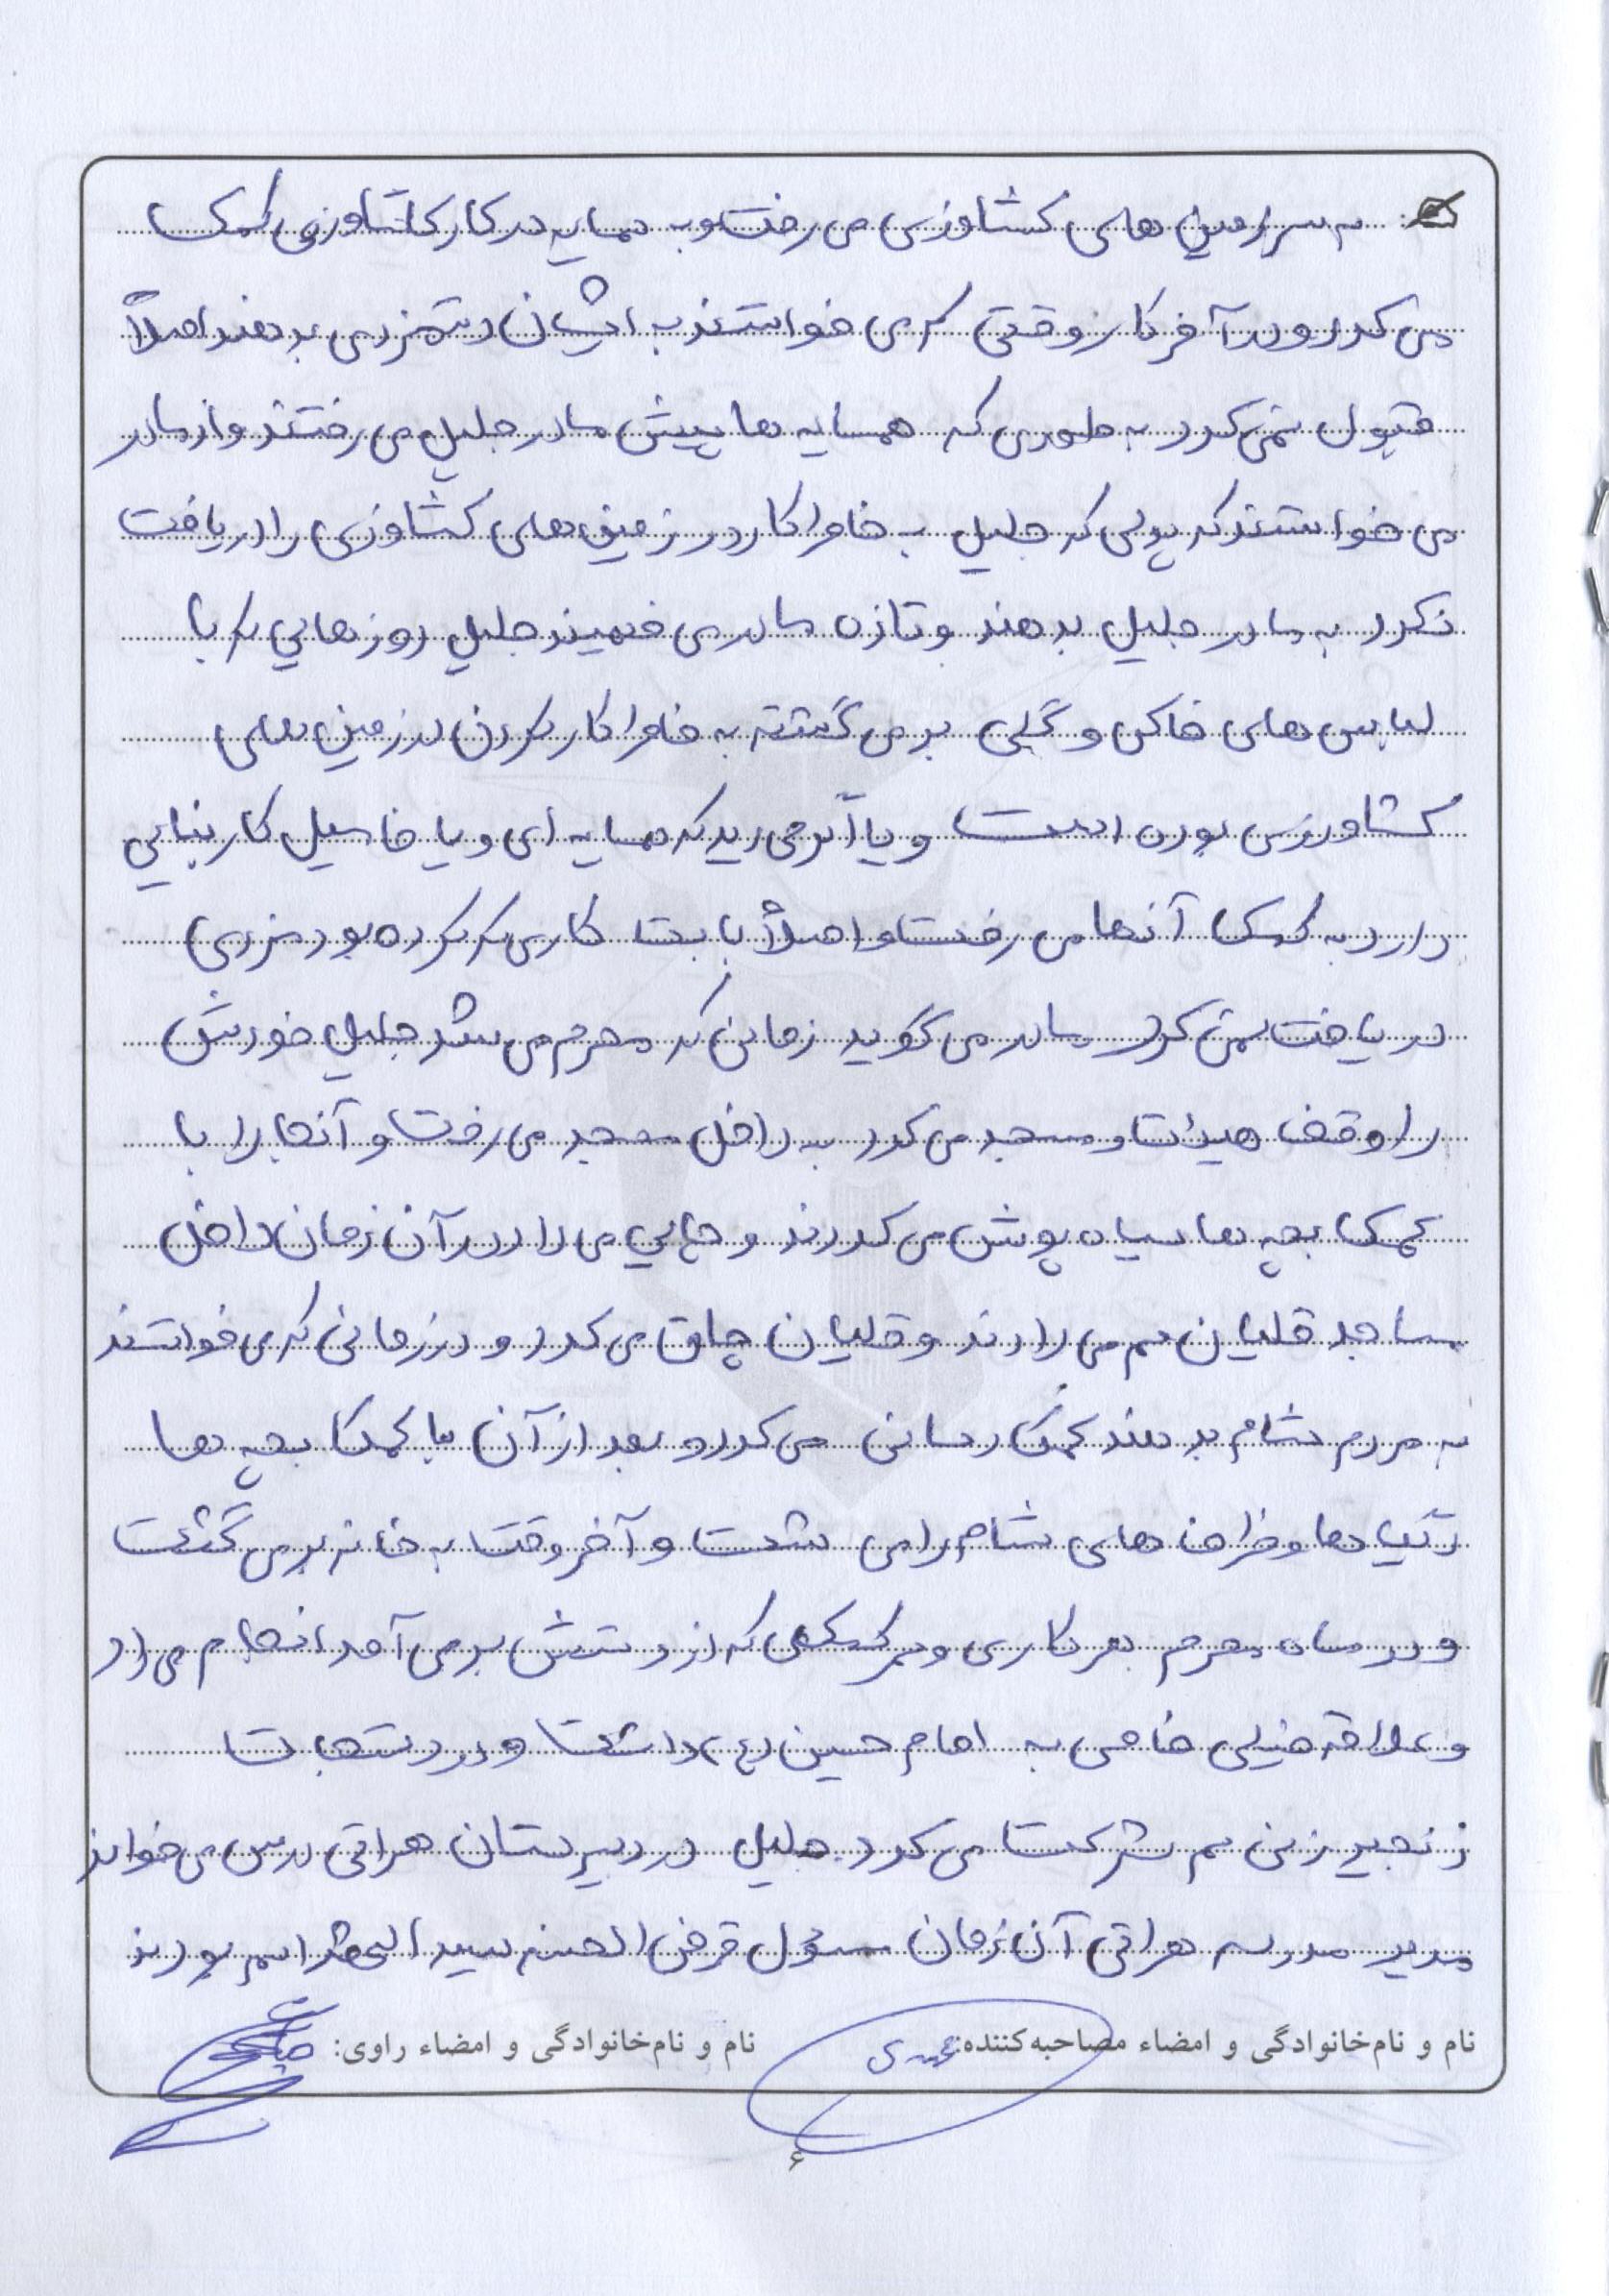 به سر زمین های کشاورزی می رفت و به همسایه در کار کشاورزی کمک
می کرد و در آخر کار وقتی که می خواستند به ایشان دستمزدی بدهند اصلاً
قبول نمی کرد به طوری که همسایه ها پیش مادر جلیل می رفتند و از مادر
می خواستند که پولی که جلیل به خاطر کار در زمین های کشاورزی را دریافت
نکرد به مادر جلیل بدهند و تازه مادر می فهمید جلیل روزهایی که با
لباس های خاکی و گلی بر می گشته به خاطر کار کردن در زمین های
کشاورزی بوده است و یا اگر می دید که همسایه ای و یا فامیل کار بنایی
دارد به کمک آنها می رفت و اصلاً بابت کاری که کرده بود مزدی
دریافت نمی کرد مادر می گوید زمانی که محرم می شد جلیل خودش
را وقف هیئت و مسجد می کرد به داخل مسجد می رفت و آنجا را با
کمک بچه ها سیاه پوش می کردند و چایی می داد در آن زمان داخل
مساجد قلیان هم می دادند و قلیان چاق می کرد و در زمانی که می خواستند
به مردم شام بدهند کمک رسانی می کرد و بعد از آن با کمک بچه ها
دیگ ها و ظرف های شام را می شست و آخر وقت به خانه بر می گشت
و در ماه محرم هر کاری و هر کمکی که از دستش بر می آمد انجام می داد
و علاقه خیلی خاصی به امام حسین (ع) داشت و در دستجات
زنجیر زنی هم شرکت می کرد. جلیل در دبیرستان هراتی درس می خواند
مدیر مدرسه هراتی آن زمان مسئول قرض الحسنه سید الشهدا هم بودند
نام و نام‌خانوادگی و امضاء مصاحبه‌کننده: نام و نام‌خانوادگی و امضاء راوی:
۶